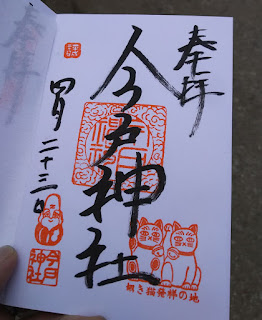 奉拝
今戸神社
四月二十三日
招き猫発祥の地
今戸神社